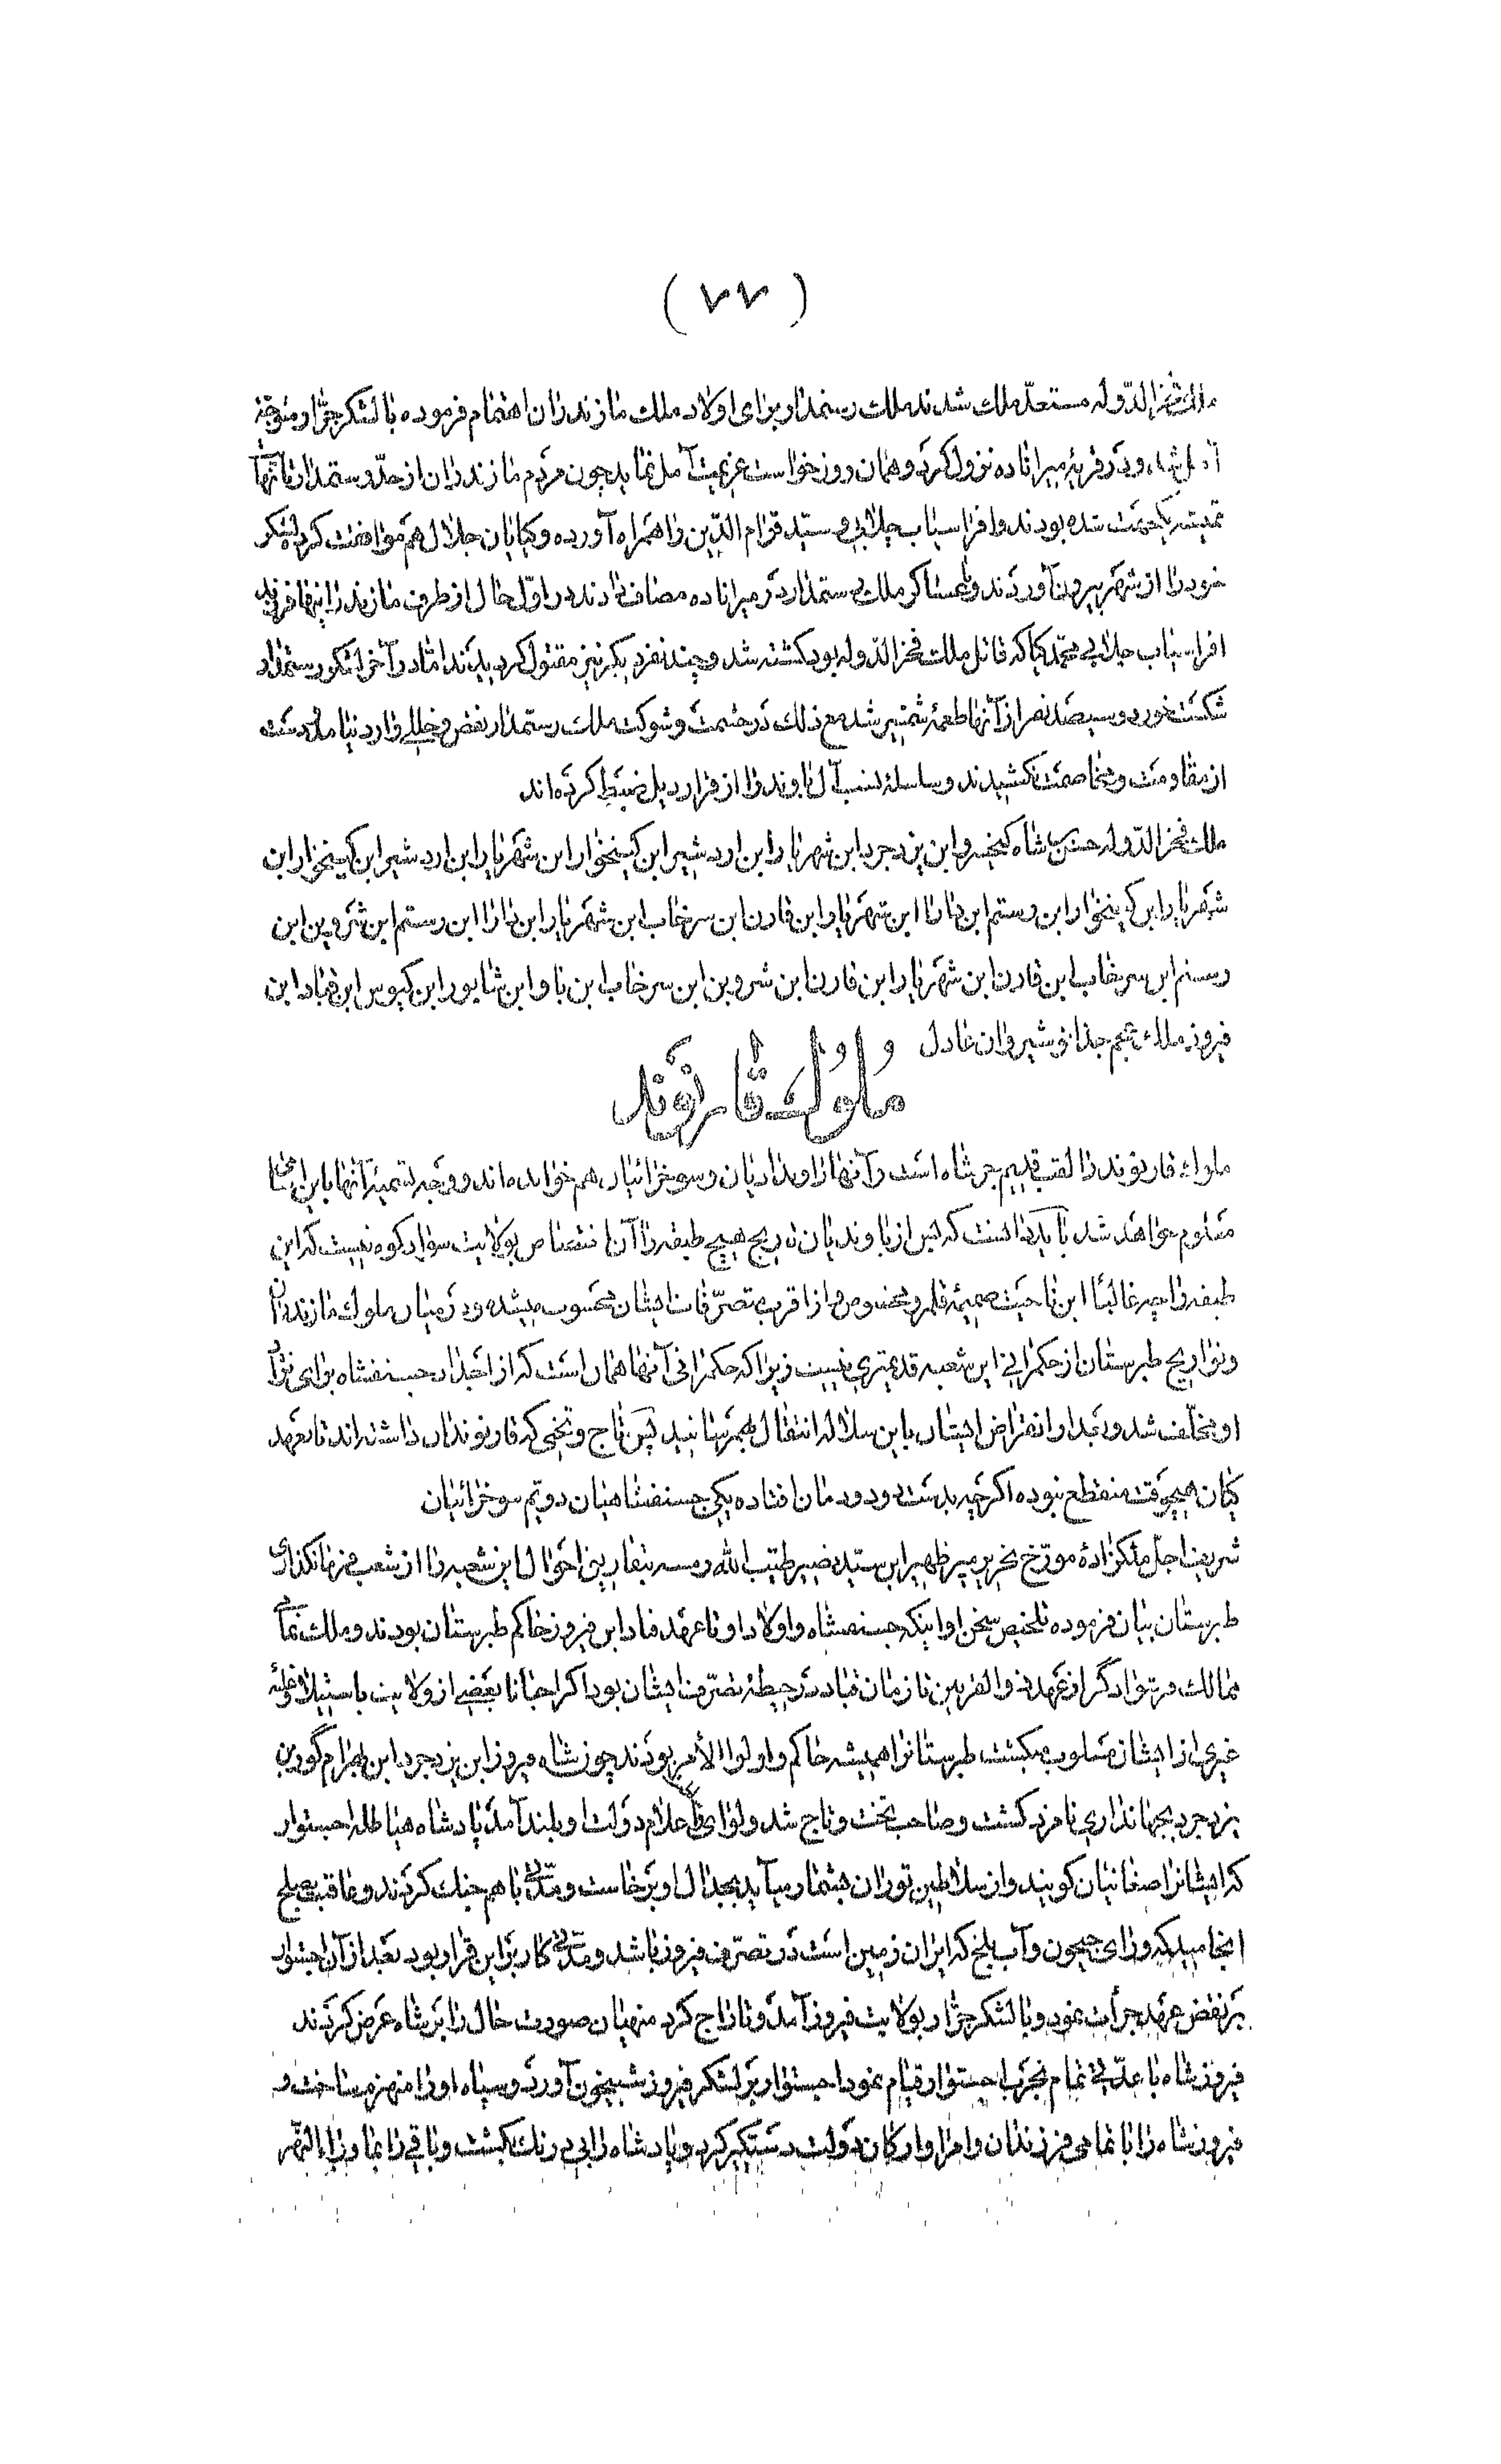 ( ٧٧ )
ملک فخرالدّوله مستعدّ ملک شدند ملک رستمدار برای اولاد ملک مازندران اهتمام فرموده با لشکر جرّار متوجّه
آمل شد و در قریهٔ میرانا ده نزول کرد و همان روز خواست عزیمت آمل نماید چون مردم مازندران از حدّ رستمدار تا
یکجهت شده بودند و افراسیاب چلابی و سیّد قوام الدّین را همراه آورده و کیایان جلال هم موافقت کرده لشکر
خود را از شهر بیرون آوردند و با عساکر ملک رستمدار در میرانا ده مصاف دادند در اوّل حال از طرف مازندرانیها فرزند
افراسیاب چلابی محمّد کیا که قاتل ملک فخرالدّوله بود کشته شد و چند نفر دیگر نیز مقتول گردیدند امّا در آخر لشکر رستمدار
شکست خورد و سیصد نفر از آنها طعمهٔ شمشیر شد مع ذلک در حشمت و شوکت ملک رستمدار نقض و خللی وارد نیامد دست
از مقاومت و مخاصمت نکشیدند و سلسلهٔ نسب آل باوند را از قرار ذیل ضبط کرده‌اند
ملک فخرالدّوله حسن بن شاه کیخسرو ابن یزدجرد ابن شهریار ابن اردشیر ابن کینخوار ابن شهریار ابن اردشیر ابن کینخوار ابن
شهریار ابن کینخوار ابن رستم ابن دارا ابن شهریار ابن قارن ابن سرخاب ابن شهریار ابن دارا ابن رستم ابن شروین ابن
رستم ابن سرخاب ابن قارن ابن شهریار ابن قارن ابن شروین ابن سرخاب ابن باو ابن شاپور ابن کیوس ابن قباد ابن
فیروز ملک عجم جدّ انوشیروان عادل
مُلوُک قارنوَند
ملوک قارنوند را لقب قدیم جرشاه است و آنها را وندادیان و سوخرائیان هم خوانده‌اند و وجه تسمیهٔ آنها باین اسامی
معلوم خواهد شد باید دانست که پس از باوندیان تاریخ هیچ طبقه را آن اختصاص بولایت سوادکوه نیست که این
طبقه را چه غالبًا این ناحیت ضمیمهٔ قلمرو مخصوص و از اقرب تصرّفات ایشان محسوب میشده و در میان ملوک مازندران
و تواریخ طبرستان از حکمرانی این شعبه قدیمتری نیست زیرا که حکمرانی آنها همان است که از اجداد جسنفشاه برای نژاد
او مخلّف شد و بعد از انقراض ایشان باین سلاله انتقال بهمرسانید پس تاج و تختی که قارنوندان داشته‌اند تا بعهد
کیان هیچوقت منقطع نبوده اگر چه بدست دو دودمان افتاده یکی جسنفشاهیان دویّم سوخرائیان
شریف اجل ملکزادهٔ مورّخ نحریر میر ظهیر ابن سیّد نصیر طیّب الله رمسه بتقاریبی احوال این شعبه را از شعب فرمانگذاری
طبرستان بیان فرموده تلخیص سخن او اینکه جسنفشاه و اولاد او تا عهد قباد ابن فیروز حاکم طبرستان بودند و ملک تمامی
ممالک فرشوادگر از عهد ذو القرنین تا زمان قباد در حیطهٔ تصرّف ایشان بود اگر احیانا بعضی از ولایت باستیلا و غلبه
غیری از ایشان مسلوب میگشت طبرستانرا همیشه حاکم و اولوا الأمر بودند چون شاه فیروز ابن یزدجرد ابن بهرام گور بن
یزدجرد بجهانداری نامزد گشت و صاحب تخت و تاج شد و لوای اعلام دولت او بلند آمد پادشاه هیاطله اجستوار
که ایشانرا صغانیان گویند و از سلاطین توران بشمار میآید بجدال او برخاست و مدّتی با هم جنگ کردند و عاقبت بصلح
انجامید که ورای جیحون و آب بلخ که ایران زمین است در تصرّف فیروز باشد و مدّتی کار بر این قرار بود بعد از آن اجستوار
بر نقض عهد جرأت نمود و با لشکر جرّار بولایت فیروز آمد و تاراج کرد منهیان صورت حال را بر شاه عرض کردند
فیروز شاه با عدّتی تمام بحرب اجستوار قیام نمود اجستوار بر لشکر فیروز شبیخون آورد و سپاه او را منهزم ساخت و
فیروز شاه را با تمامی فرزندان و امرا و ارکان دولت دستگیر کرد و پادشاه را بی درنگ بکشت و باقی را بماوراء النّهر